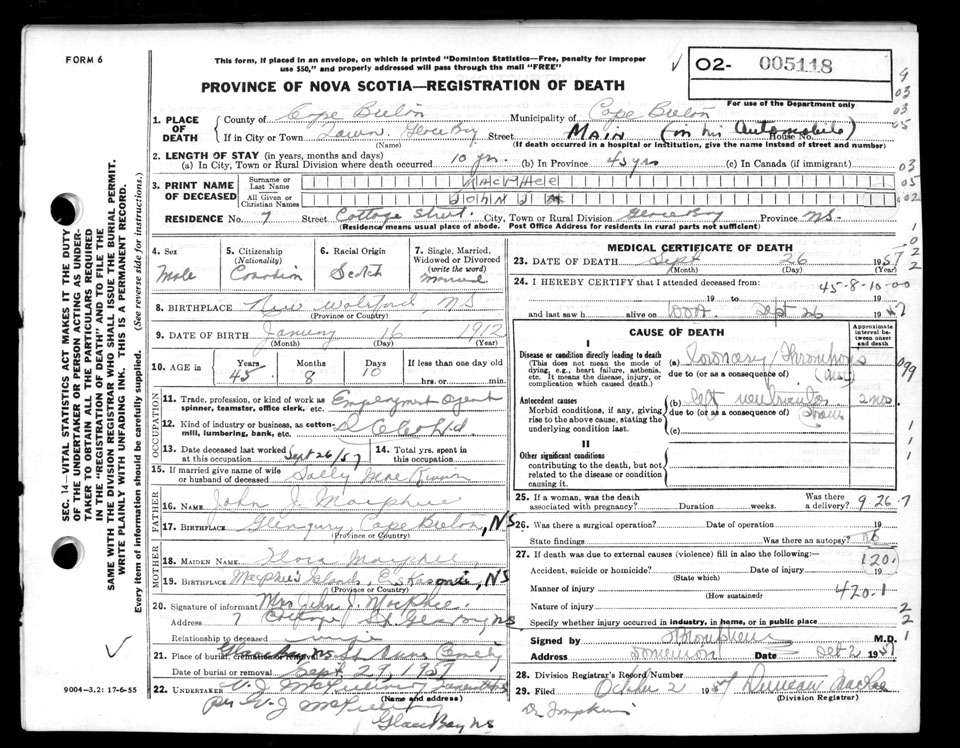 FORM 6
This form, if placed in an envelope, on which is printed "Dominion Statistics—Free, penalty for improper
use $50," and properly addressed will pass through the mail "FREE"
O2- 005118
For use of the Department only
PROVINCE OF NOVA SCOTIA—REGISTRATION OF DEATH
1. PLACE OF DEATH
County of Cape Breton Municipality of Cape Breton
If in City or Town Town Glace Bay Street MAIN (in his Automobile) House No.
(Name) (If death occurred in a hospital or institution, give the name instead of street and number)
2. LENGTH OF STAY (in years, months and days)
(a) In City, Town or Rural Division where death occurred 10 yrs. (b) In Province 45 yrs (c) In Canada (if immigrant)
3. PRINT NAME OF DECEASED
Surname or Last Name MACPHEE
All Given or Christian Names JOHN J
RESIDENCE No. 7 Street Cottage Street. City, Town or Rural Division Glace Bay Province NS-
(Residence means usual place of abode. Post Office Address for residents in rural parts not sufficient)
4. Sex
Male
5. Citizenship (Nationality)
Canadian
6. Racial Origin
Scotch
7. Single, Married, Widowed or Divorced (write the word)
Married
8. BIRTHPLACE New Waterford NS
(Province or Country)
9. DATE OF BIRTH January 16 1912
(Month) (Day) (Year)
10. AGE in Years Months Days If less than one day old
45 8 10 hrs. or min.
OCCUPATION
11. Trade, profession, or kind of work as spinner, teamster, office clerk, etc. Employment Agent
12. Kind of industry or business, as cotton-mill, lumbering, bank, etc.
13. Date deceased last worked at this occupation Sept 26/57
14. Total yrs. spent in this occupation
15. If married give name of wife or husband of deceased Sally MacKinnon
FATHER
16. NAME John J Macphee
17. BIRTHPLACE Glengary, Cape Breton, NS
(Province or Country)
MOTHER
18. MAIDEN NAME Flora Macphee
19. BIRTHPLACE Macphee's Islands, Eskasonie, NS
(Province or Country)
20. Signature of informant Mrs John J. MacPhee.
Address 7 Cottage St. Glace Bay NS
Relationship to deceased wife
21. Place of burial, cremation or removal Glace Bay NS St Anns Cemetery
Date of burial or removal Sept 29, 1957
22. UNDERTAKER V. J. McGillivray
(Name and address)
per V. J. McGillivray
Glace Bay NS
9004—3.2: 17-6-55
SEC. 14—VITAL STATISTICS ACT MAKES IT THE DUTY
OF THE UNDERTAKER OR PERSON ACTING AS UNDER-
TAKER TO OBTAIN ALL THE PARTICULARS REQUIRED
IN THE "REGISTRATION OF DEATH" AND TO FILE THE
SAME WITH THE DIVISION REGISTRAR WHO SHALL ISSUE THE BURIAL PERMIT.
WRITE PLAINLY WITH UNFADING INK. THIS IS A PERMANENT RECORD.
Every item of information should be carefully supplied. (See reverse side for instructions.)
MEDICAL CERTIFICATE OF DEATH
23. DATE OF DEATH Sept 26 1957
(Month) (Day) (Year)
24. I HEREBY CERTIFY that I attended deceased from:
45-8-10-00
19 to 19
and last saw h alive on DOA. Sept 26 1957
CAUSE OF DEATH
Approximate interval between onset and death
I
Disease or condition directly leading to death
(This does not mean the mode of dying, e.g., heart failure, asthenia, etc. It means the disease, injury, or complication which caused death.)
(a) Coronary Thrombosis
due to (or as a consequence of)
099
Antecedent causes
Morbid conditions, if any, giving rise to the above cause, stating the underlying condition last.
(b) left ventricular strain
due to (or as a consequence of)
(c)
II
Other significant conditions
contributing to the death, but not related to the disease or condition causing it.
25. If a woman, was the death associated with pregnancy? Duration weeks. Was there a delivery? 9-26-7
26. Was there a surgical operation? Date of operation 19
State findings Was there an autopsy? no
27. If death was due to external causes (violence) fill in also the following:—
Accident, suicide or homicide? Date of injury 19
(State which)
120.
Manner of injury 420.1
(How sustained)
Nature of injury
Specify whether injury occurred in industry, in home, or in public place
Signed by M.D.
Address Dominion Date Oct 2 1957
28. Division Registrar's Record Number
29. Filed October 2 1957 Duncan MacRae
(Division Registrar)
Dr Tompkins